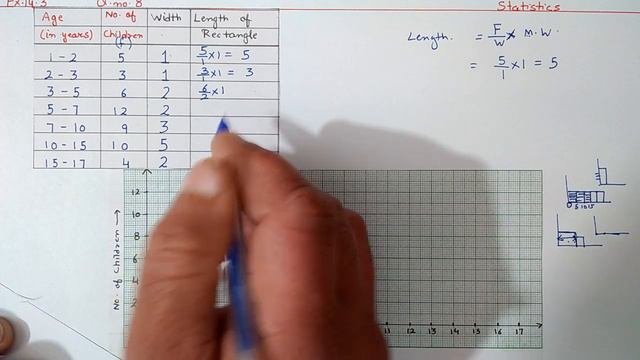 Ex.14.3 Q.no.8 Statistics
Age (in years) No. of Children (f) Width Length of Rectangle
1 - 2 5 1 5/1 x1 = 5
2 - 3 3 1 3/1 x1 = 3
3 - 5 6 2 6/2 x1
5 - 7 12 2
7 - 10 9 3
10 - 15 10 5
15 - 17 4 2
Length = F/W x M.W.
= 5/1 x1 = 5
No. of Children →
12
10
8
6
4
2
11 12 13 14 15 16 17
0 5 10 15